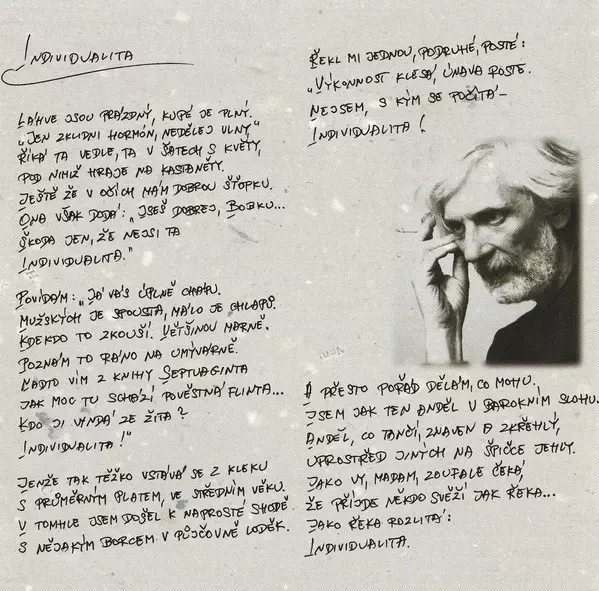 INDIVIDUALITA
LÁHVE JSOU PRÁZDNÝ, KUPÉ JE PLNÝ.
„JEN ZKLIDNI HORMÓN, NEDĚLEJ VLNY,"
ŘÍKÁ TA VEDLE, TA V ŠATECH S KVĚTY,
POD NIMIŽ HRAJE NA KASTANĚTY.
JEŠTĚ ŽE V OČÍCH MÁM DOBROU ŠŤOPKU.
ONA VŠAK DODÁ: „JSEŠ DOBREJ, BOBKU...
ŠKODA JEN, ŽE NEJSI TA
INDIVIDUALITA."
POVÍDÁM: „JÁ VÁS ÚPLNĚ CHÁPU.
MUŽSKÝCH JE SPOUSTA, MÁLO JE CHLAPŮ.
KDEKDO TO ZKOUŠÍ. VĚTŠINOU MARNĚ.
POZNÁM TO RÁNO NA UMÝVÁRNĚ.
LADTO VÍM Z KNIHY SEPTUAGINTA
JAK MOC TU SCHÁZÍ POVĚSTNÁ FLINTA...
KDO JI VYNDÁ ZE ŽITA?
INDIVIDUALITA!"
JENŽE TAK TĚŽKO VSTÁVÁ SE Z KLEKU
S PRŮMĚRNÝM PLATEM, VE STŘEDNÍM VĚKU.
V TOMHLE JSEM DOŠEL K NAPROSTÉ SHODĚ
S NĚJAKÝM BORCEM V PŮJČOVNĚ LODĚK.
ŘEKL MI JEDNOU, PODRUHÉ, POSTÉ:
„VÝKONNOST KLESÁ, ÚNAVA ROSTE.
NEJSEM, S KÝM SE POČÍTÁ –
INDIVIDUALITA!
A PŘESTO POŘÁD DĚLÁM, CO MOHU.
JSEM JAK TEN ANDĚL V BAROKNÍM SLOHU.
ANDĚL, CO TANČÍ, ZNAVEN A ZKŘEHLÝ,
UPROSTŘED JINÝCH NA ŠPIČCE JEHLY.
JAKO VY, MADAM, ZOUFALE ČEKÁ,
ŽE PŘIJDE NĚKDO SVĚŽÍ JAK ŘEKA...
JAKO ŘEKA ROZLITÁ:
INDIVIDUALITA.